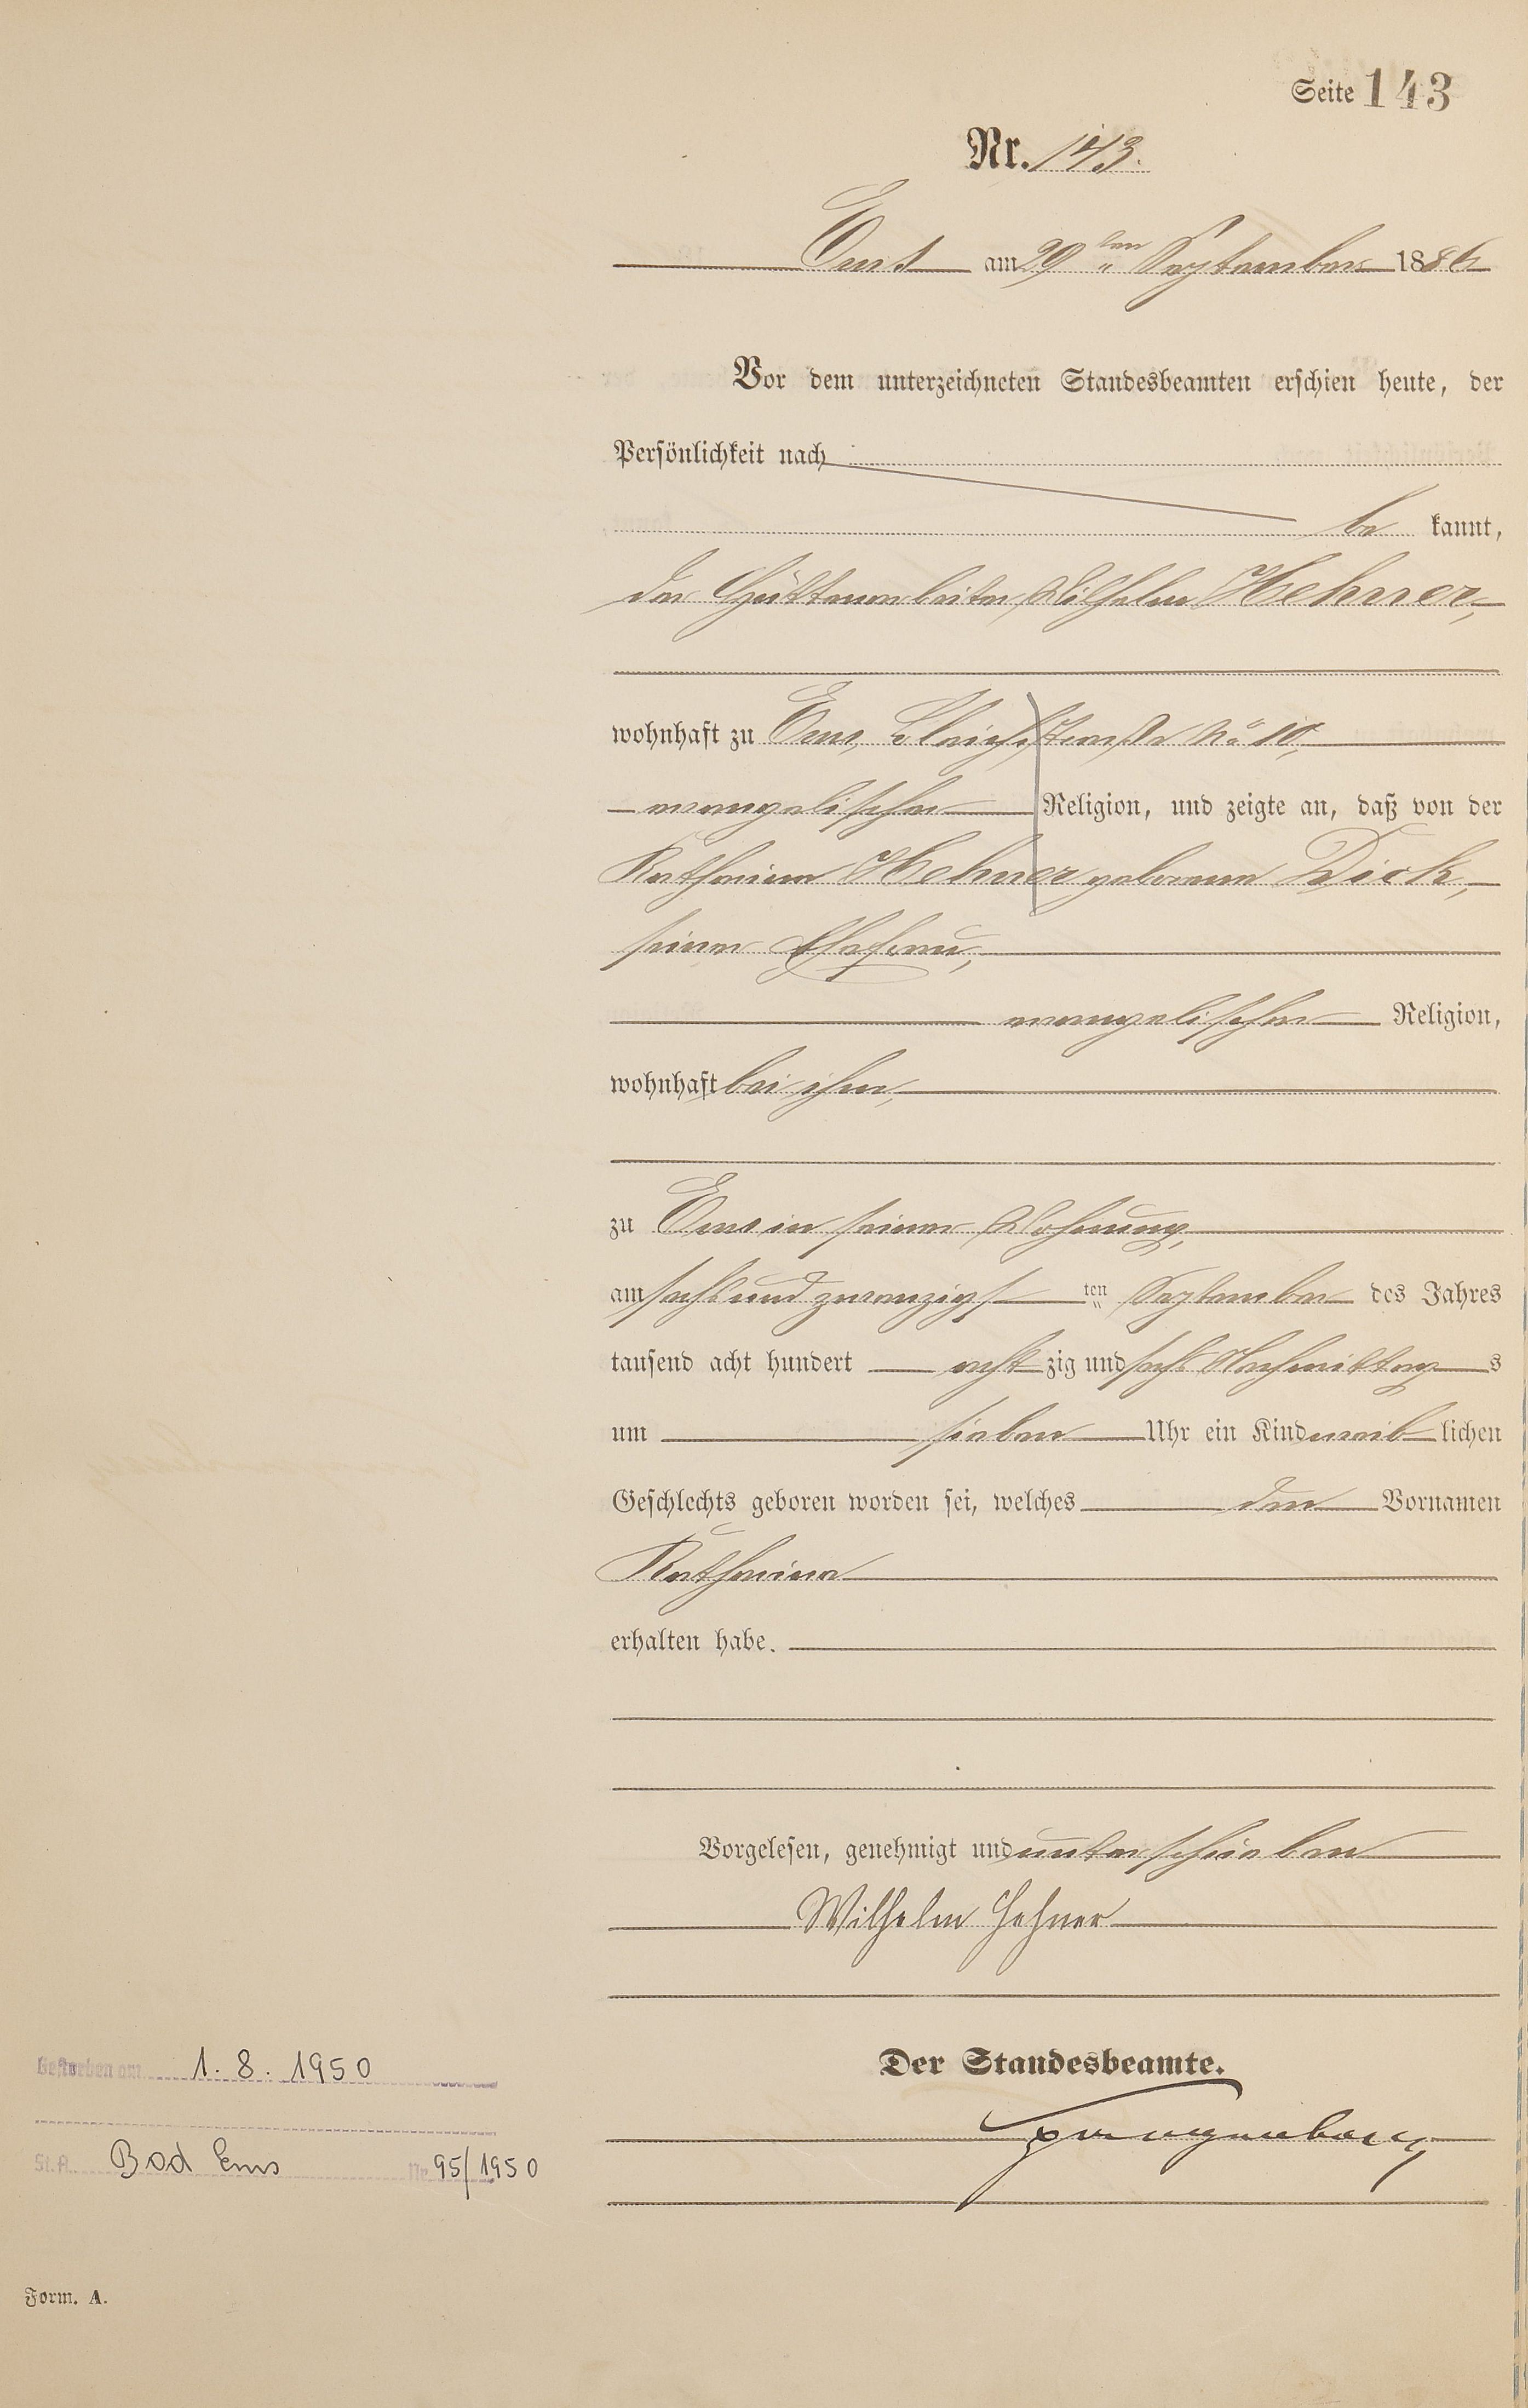 Seite 143
Nr. 143.
Ems am 29ten September 1886
Vor dem unterzeichneten Standesbeamten erschien heute, der
Persönlichkeit nach
be kannt,
der Hüttenarbeiter Wilhelm Hehner,
wohnhaft zu Ems, Bleichstraße No 10,
evangelischer Religion, und zeigte an, daß von der
Katharina Hehner geborene Dick,
seiner Ehefrau,
evangelischer Religion,
wohnhaft bei ihm,
zu Ems in seiner Wohnung,
am sechsundzwanzigsten September des Jahres
tausend acht hundert acht zig und sechs Nachmittags
um sieben Uhr ein Kind weib lichen
Geschlechts geboren worden sei, welches den Vornamen
Katharina
erhalten habe.
Vorgelesen, genehmigt und unterschrieben
Wilhelm Hehner
Der Standesbeamte.
Gestorben am 1. 8. 1950
St.A. Bad Ems Nr. 95/1950
Form. A.